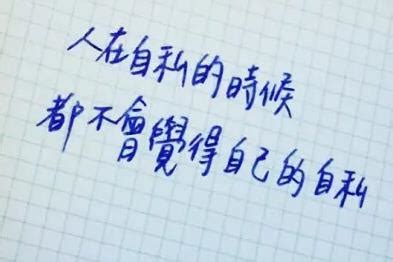 人在自私的時候
都不會覺得自己的自私